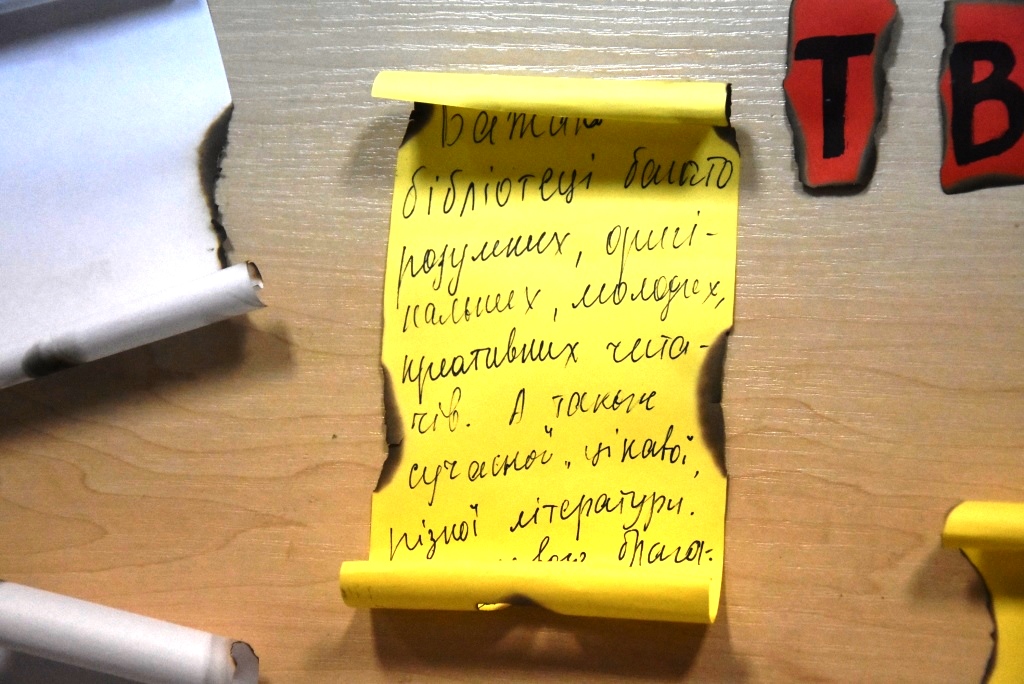 Т В
Бажаю
бібліотеці багато
розумних, оригі-
нальних, молодих,
креативних чита-
чів. А також
сучасної, цікавої,
різної літератури.